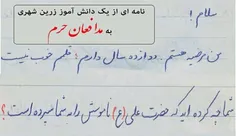 سلام!
نامه ای از یک دانش آموز زرین شهری
به مدافعان حرم
من مرضیه هستم. دوازده سال دارم! قلمم خوب نیست
شما چه کرده اید که حضرت علی (ع) ناموسش را به شما سپرده است؟